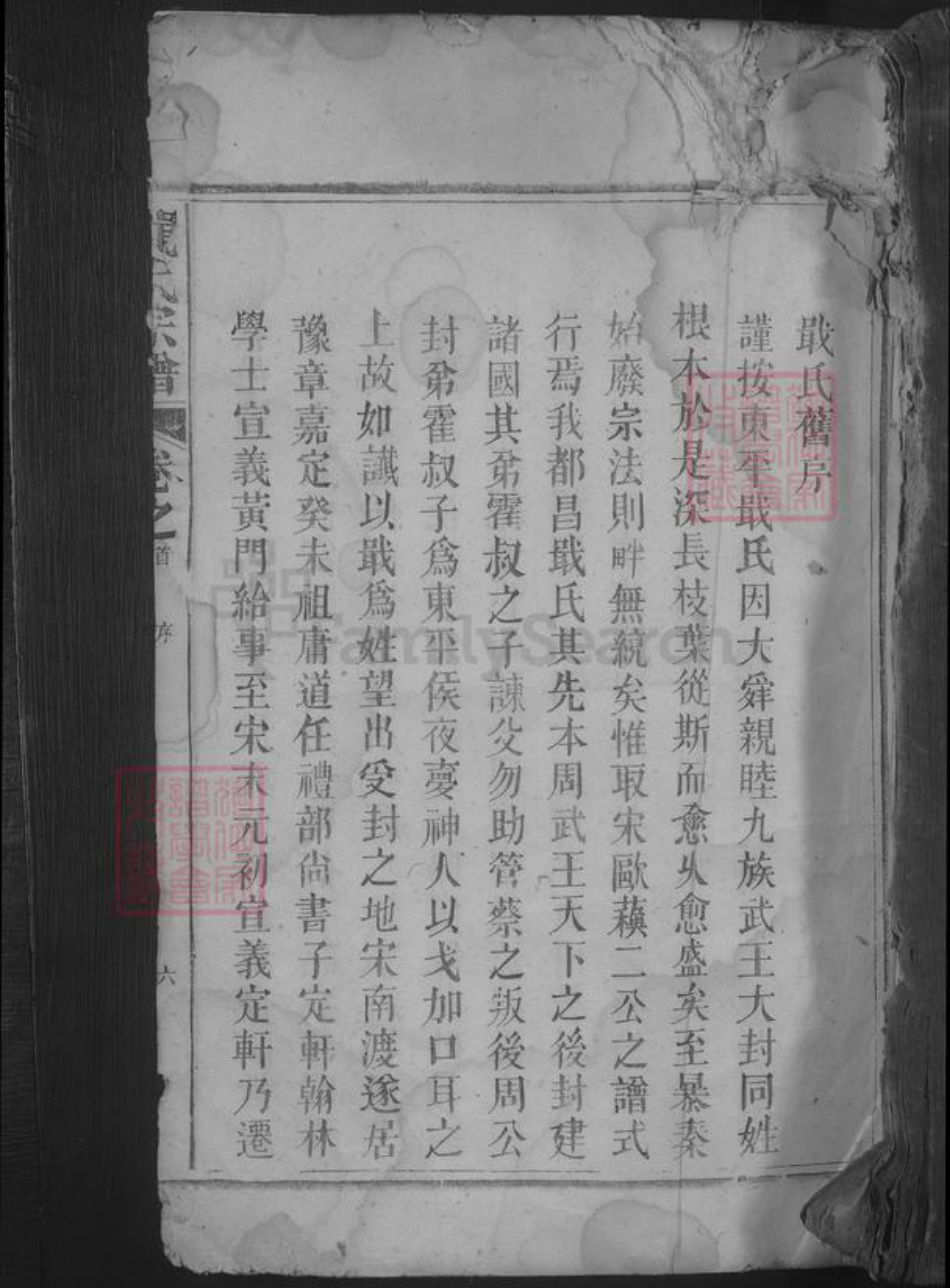 戢氏舊序
謹按東平戢氏因大舜親睦九族武王大封同姓
根本於是深長枝葉從斯而愈久愈盛矣至暴秦
始廢宗法則畔無統矣惟取宋歐蘓二公之譜式
行焉我都昌戢氏其先本周武王天下之後封建
諸國其弟霍叔之子諫父勿助管蔡之叛後周公
封弟霍叔子爲東平侯夜夢神人以戈加口耳之
上故如讖以戢爲姓望出受封之地宋南渡遂居
豫章嘉定癸未祖庸道任禮部尙書子定軒翰林
學士宣義黃門給事至宋末元初宣義定軒乃遷
氏宗譜
卷之首
序
六
FamilySearch